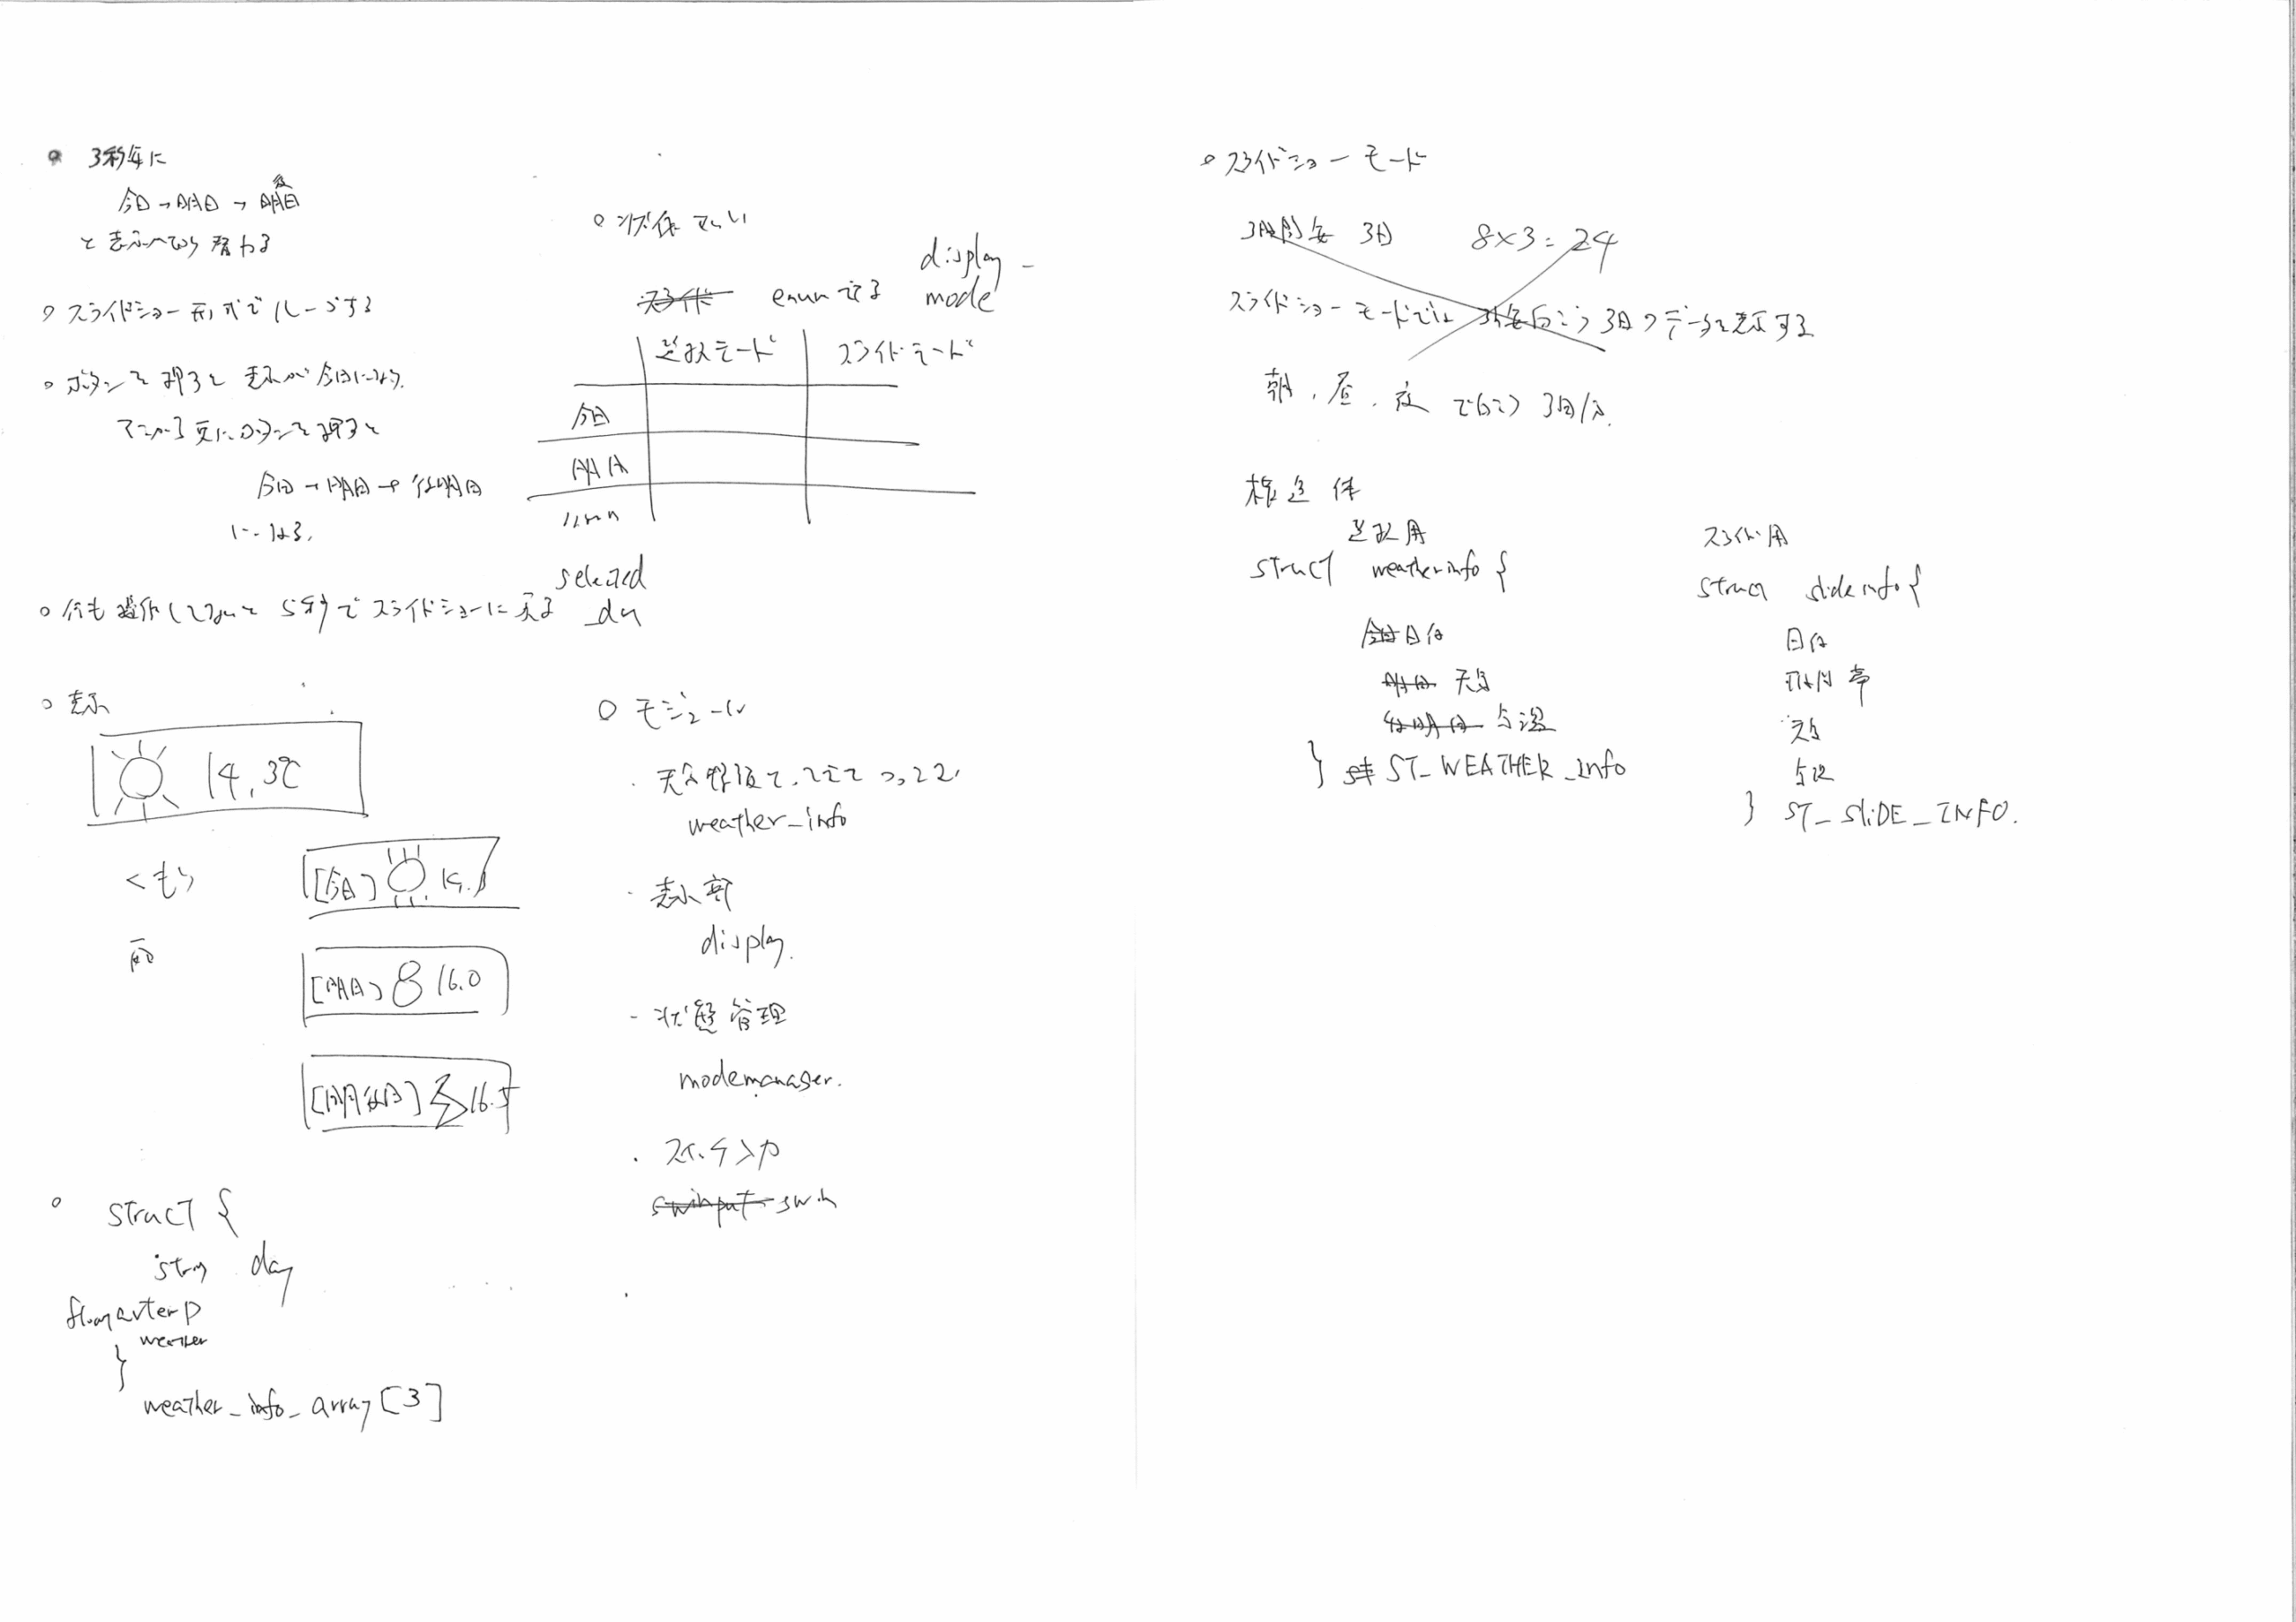 3秒毎に
今日→明日→明後日
と表示が切り替わる
スライドショー形式でループする
ボタンを押すと表示が今日になる。
そこから更にボタンを押すと
今日→明日→後明日
になる。
何も操作しないと5秒でスライドショーに戻る
表示
14.3℃
くもり
雨
[今日]
[明日] 16.0
[明後日] 16.5
struct {
day
weather
}
weather_info_array[3]
状態
enumで
display_
mode
選択モード
スライドモード
今日
明日
selected
モジュール
weather_info
表示部
display.
状態管理
modemanager.
スイッチ入力
swinput
スライドショーモード
3時間毎 3日
8×3=24
スライドショーモードでは 3日のデータを表示する
朝、昼、夜
構造体
選択用
struct weatherinfo {
日付
明日 天気
後明日 気温
} ST_WEATHER_info
スライド用
struct slideinfo {
日付
時間帯
天気
気温
} ST_SLiDE_INFO.